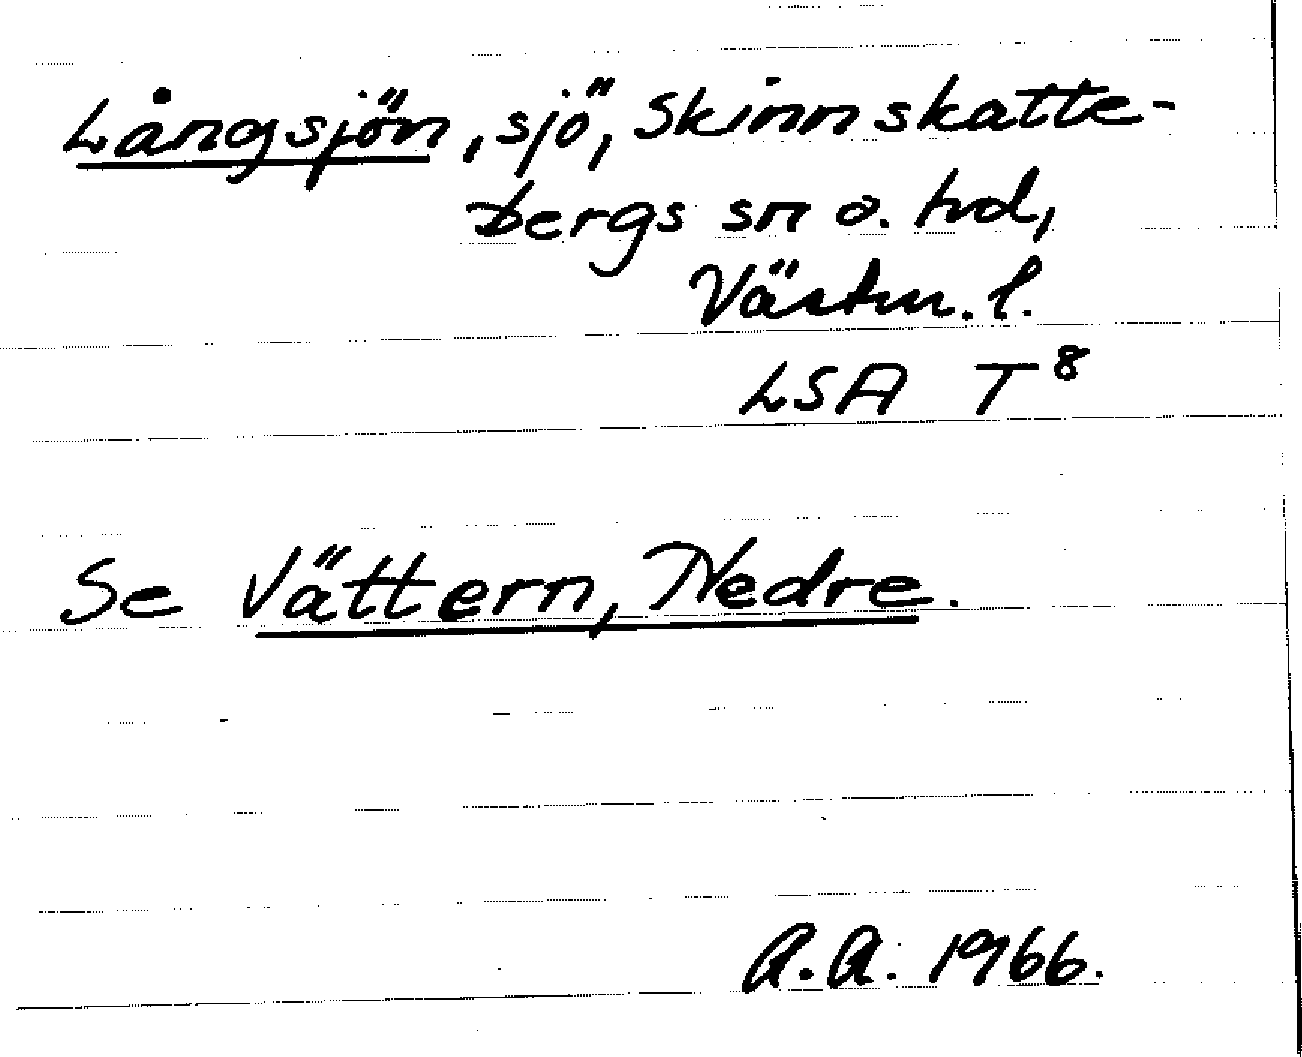 Långsjön, sjö, Skinnskatte-
bergs sn o. hd,
Västm. l.
LSA T8
Se Vättern, Nedre.
A.A. 1966.